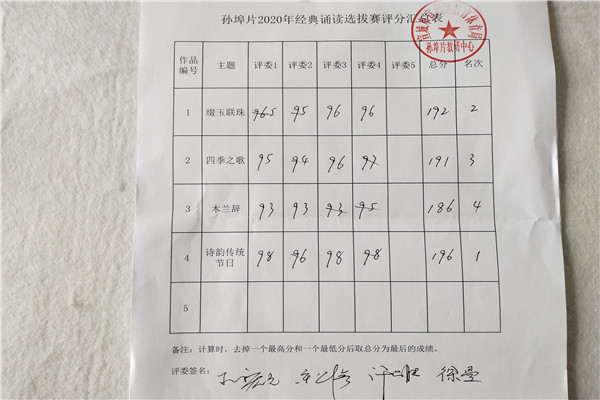 孙埠片2020年经典诵读选拔赛评分汇总表
孙埠片教研中心
作品编号 主题 评委1 评委2 评委3 评委4 评委5 总分 名次
1 缀玉联珠 96.5 95 96 96 192 2
2 四季之歌 95 94 96 97 191 3
3 木兰辞 93 93 93 95 186 4
4 诗韵传统节日 98 96 98 98 196 1
5
备注：计算时，去掉一个最高分和一个最低分后取总分为最后的成绩。
评委签名：